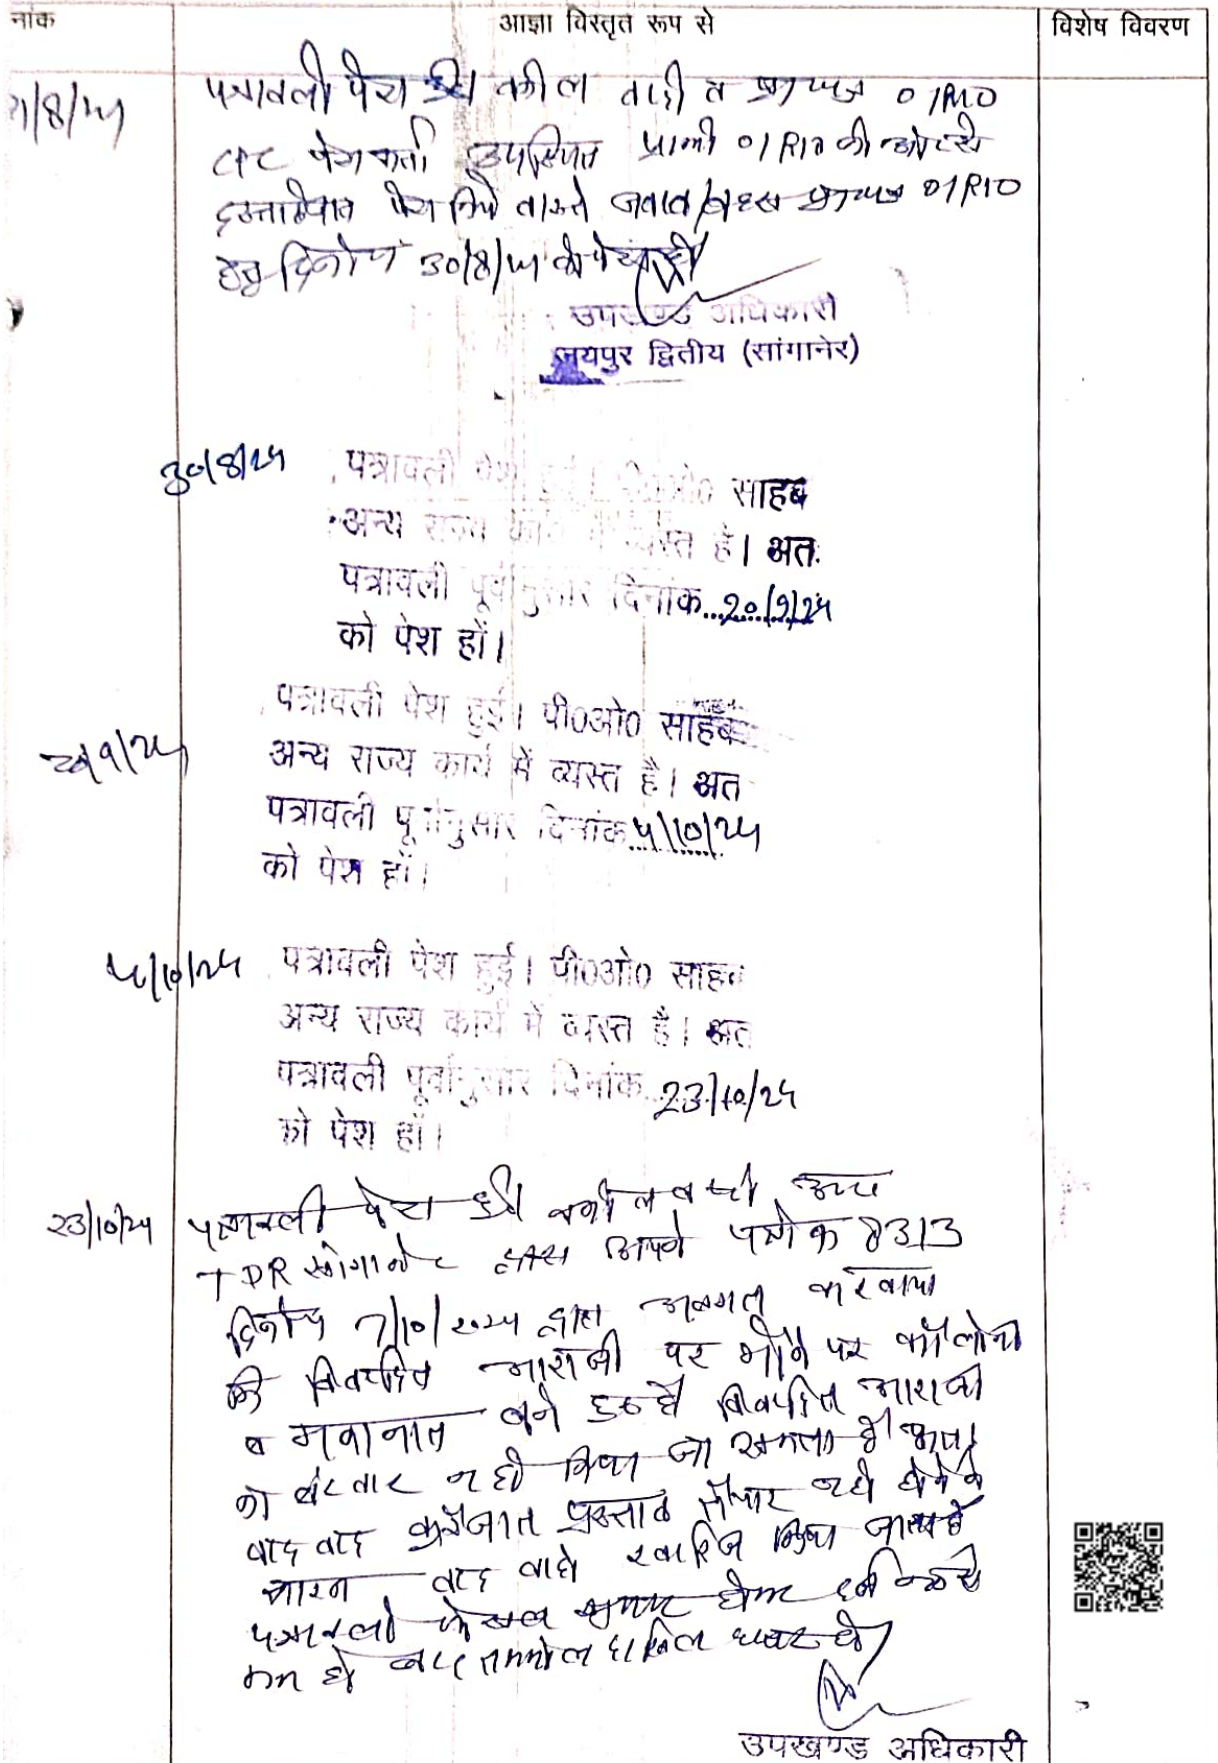 नांक
आज्ञा विस्तृत रूप से
विशेष विवरण
पत्रावली पेश हुई वकील वादी व 01R10
CPC पेशकर्ता उपस्थित प्रार्थी 01R10 की ओर से
दस्तावेजात पेश किये वास्ते जवाब/बहस 01R10
हेतु दिनांक 30/8/24 को पेश हो
उपखण्ड अधिकारी
जयपुर द्वितीय (सांगानेर)
30/8/24
पत्रावली पेश हुई। पी०ओ० साहब
अन्य राज्य कार्य में व्यस्त है। अत
पत्रावली पूर्वानुसार दिनांक...20/9/24
को पेश हों।
पत्रावली पेश हुई। पी०ओ० साहब
अन्य राज्य कार्य में व्यस्त है। अत
पत्रावली पूर्वानुसार दिनांक 4/10/24
को पेश हों।
4/10/24
पत्रावली पेश हुई। पी०ओ० साहब
अन्य राज्य कार्य में व्यस्त है। अत
पत्रावली पूर्वानुसार दिनांक 23/10/24
को पेश हों।
23/10/24
पत्रावली पेश हुई वकील
TDR सांगानेर द्वारा अपने पत्रांक 8313
दिनांक 7/10/2024 द्वारा अवगत करवाया
की विवादित आराजी पर मौके पर कॉलोनी
व मकानात बने हुए है विवादित आराजी
का बंटवार नही किया जा सकता है
वाद कुर्रेजात प्रस्ताव तैयार नही होने के
कारण वाद वादी खारिज किया जाता है
पत्रावली फैसल शुमार होकर
कम हो बाद तकमील दाखिल दफ्तर हो
उपखण्ड अधिकारी